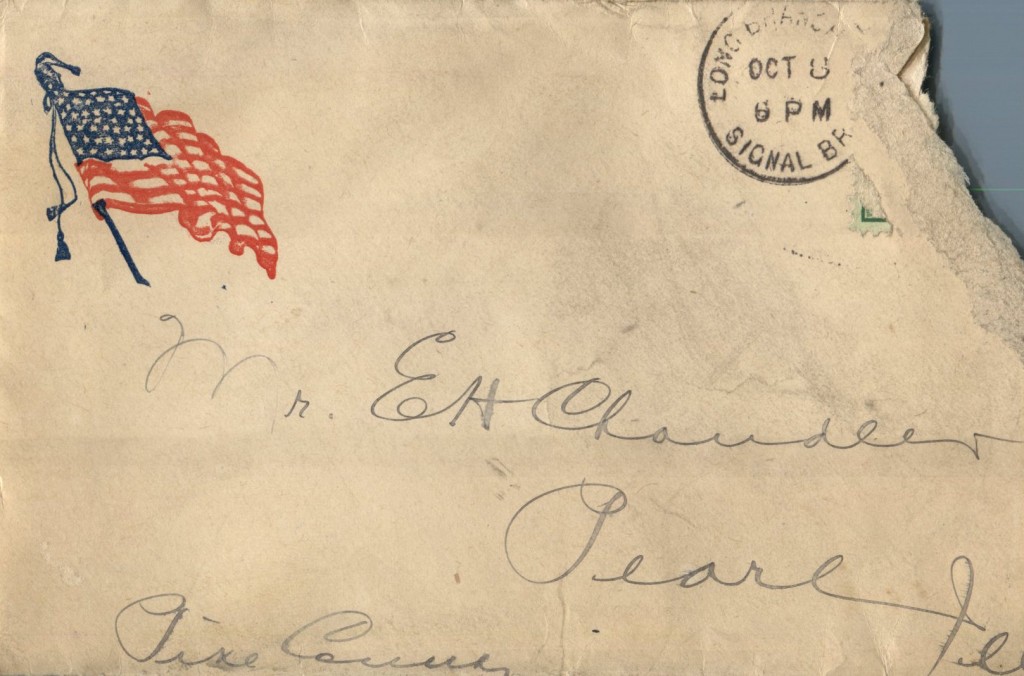 LONG BRANCH
OCT 8
6 PM
SIGNAL BR
Mr. E H Chandler
Pearl Ill
Pike County